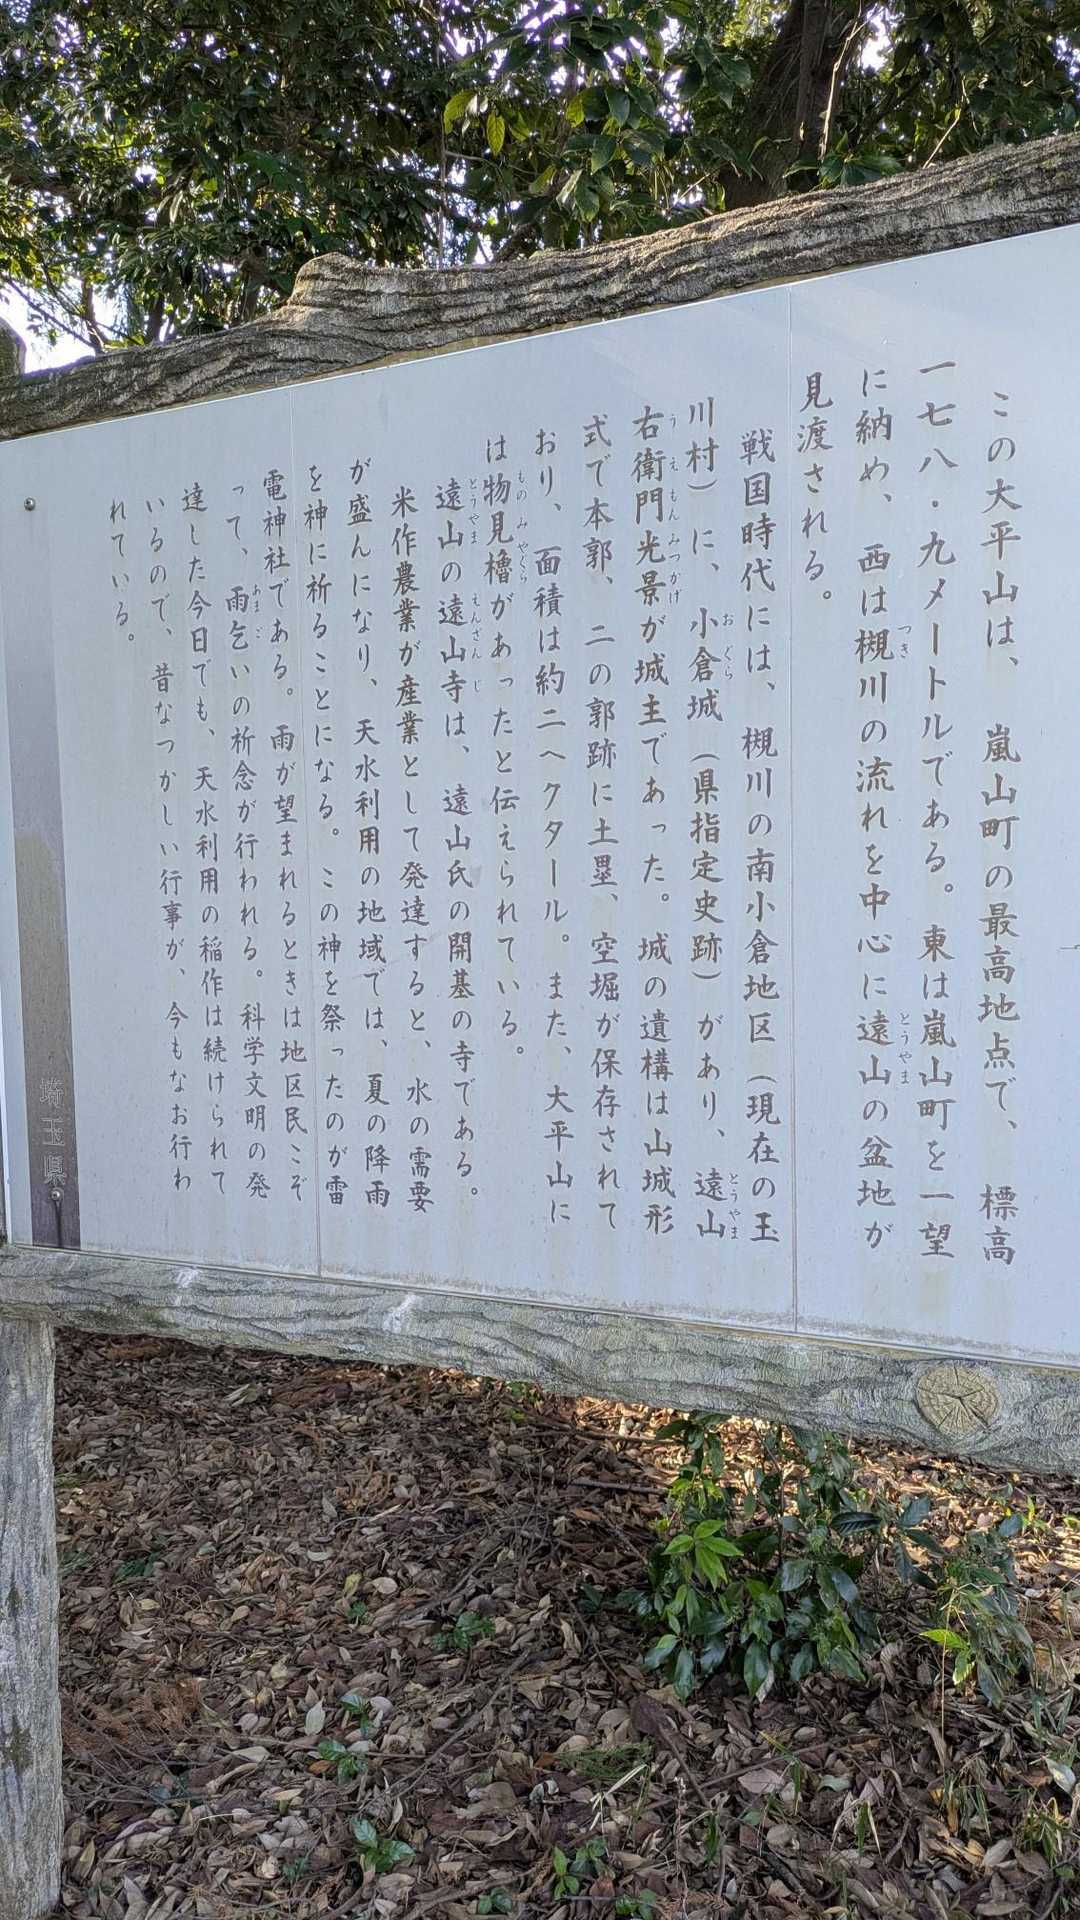 この大平山は、嵐山町の最高地点で、標高
一七八・九メートルである。東は嵐山町を一望
に納め、西は槻川の流れを中心に遠山の盆地が
つき
とうやま
見渡される。
戦国時代には、槻川の南小倉地区（現在の玉
川村）に、小倉城（県指定史跡）があり、遠山
おぐら
とうやま
右衛門光景が城主であった。城の遺構は山城形
うえもんみつかげ
式で本郭、二の郭跡に土塁、空堀が保存されて
おり、面積は約二ヘクタール。また、大平山に
は物見櫓があったと伝えられている。
ものみやぐら
遠山の遠山寺は、遠山氏の開基の寺である。
とうやま
えんざんじ
米作農業が産業として発達すると、水の需要
が盛んになり、天水利用の地域では、夏の降雨
を神に祈ることになる。この神を祭ったのが雷
電神社である。雨が望まれるときは地区民こぞ
って、雨乞いの祈念が行われる。科学文明の発
あまご
達した今日でも、天水利用の稲作は続けられて
いるので、昔なつかしい行事が、今もなお行わ
れている。
埼玉県